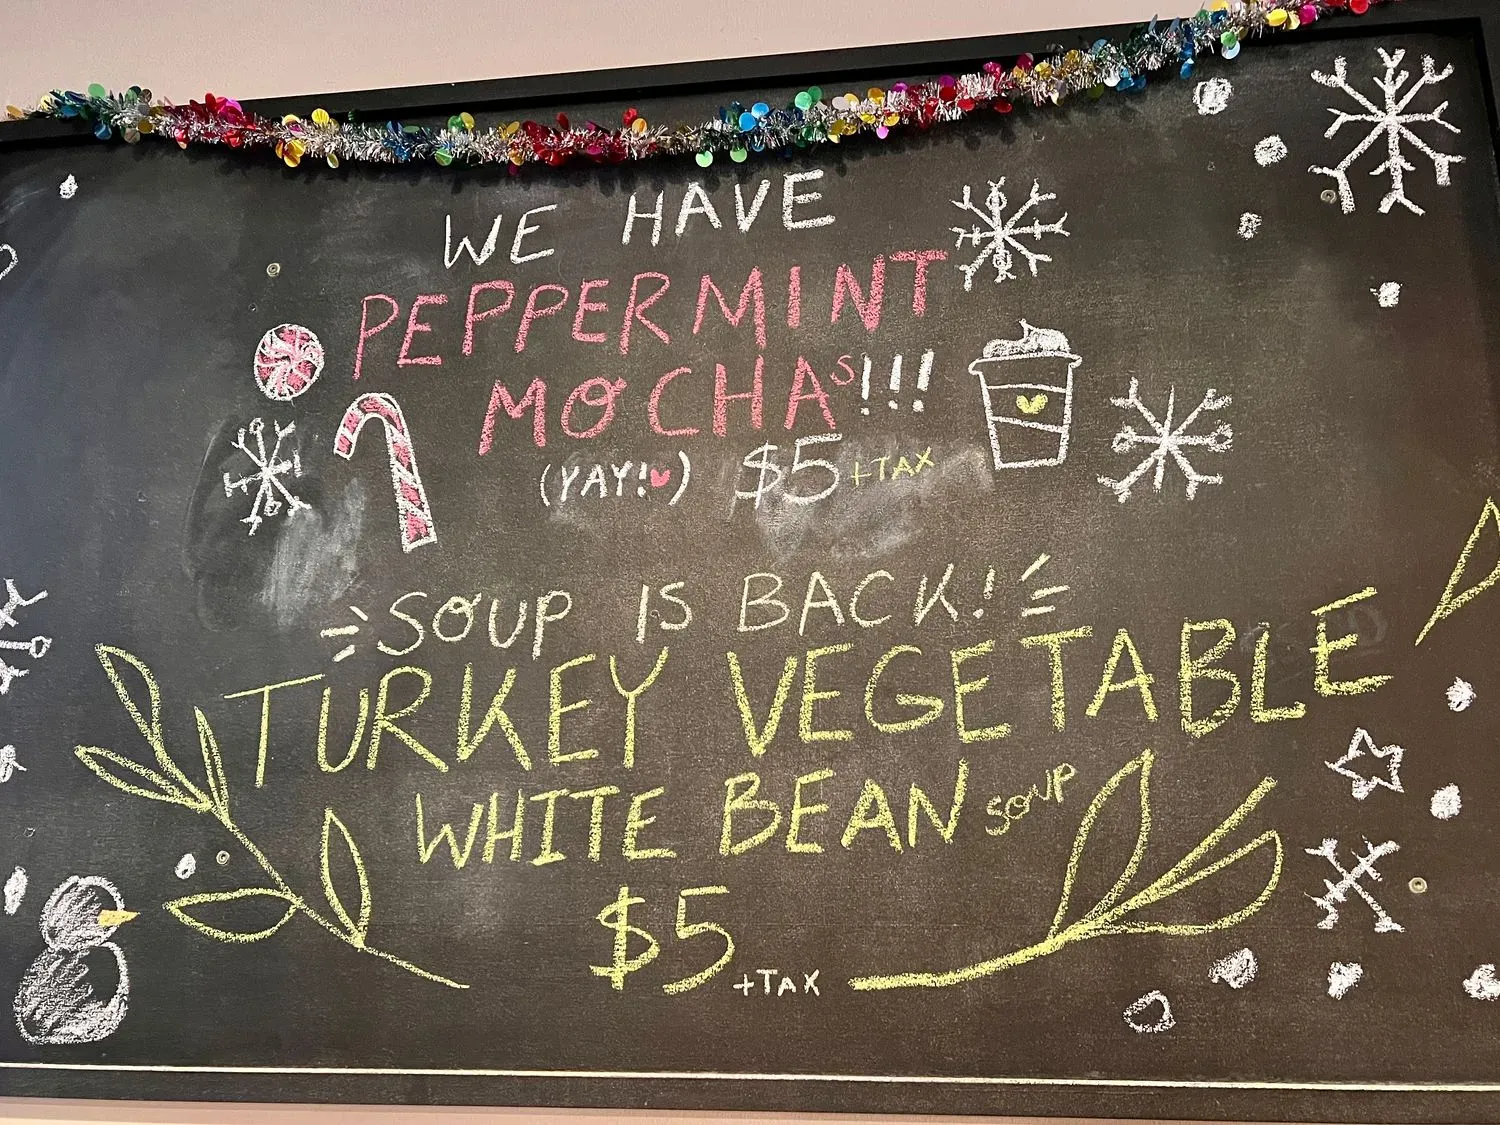 WE HAVE
PEPPERMINT
MOCHAS!!!
(YAY!♥) $5 +TAX
SOUP IS BACK!
TURKEY VEGETABLE
WHITE BEAN SOUP
$5 +TAX